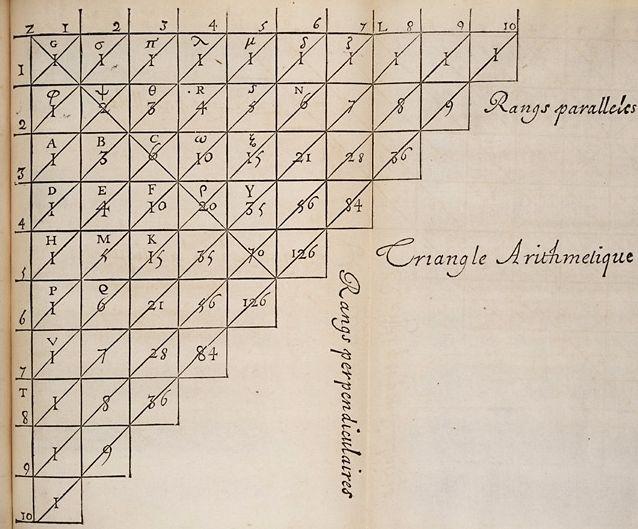 Z 1 2 3 4 5 6 7 L 8 9 10
G σ π λ μ δ ζ
1 1 1 1 1 1 1 1 1 1 1
φ ψ θ R S N
2 1 2 3 4 5 6 7 8 9 Rangs paralleles
A B C ω ξ
3 1 3 6 10 15 21 28 36
D E F ρ Y
4 1 4 10 20 35 56 84
H M K
5 1 5 15 35 70 126 Triangle Arithmetique
P Q
6 1 6 21 56 126
Rangs perpendiculaires
V
7 1 7 28 84
T
8 1 8 36
9 1 9
10 1